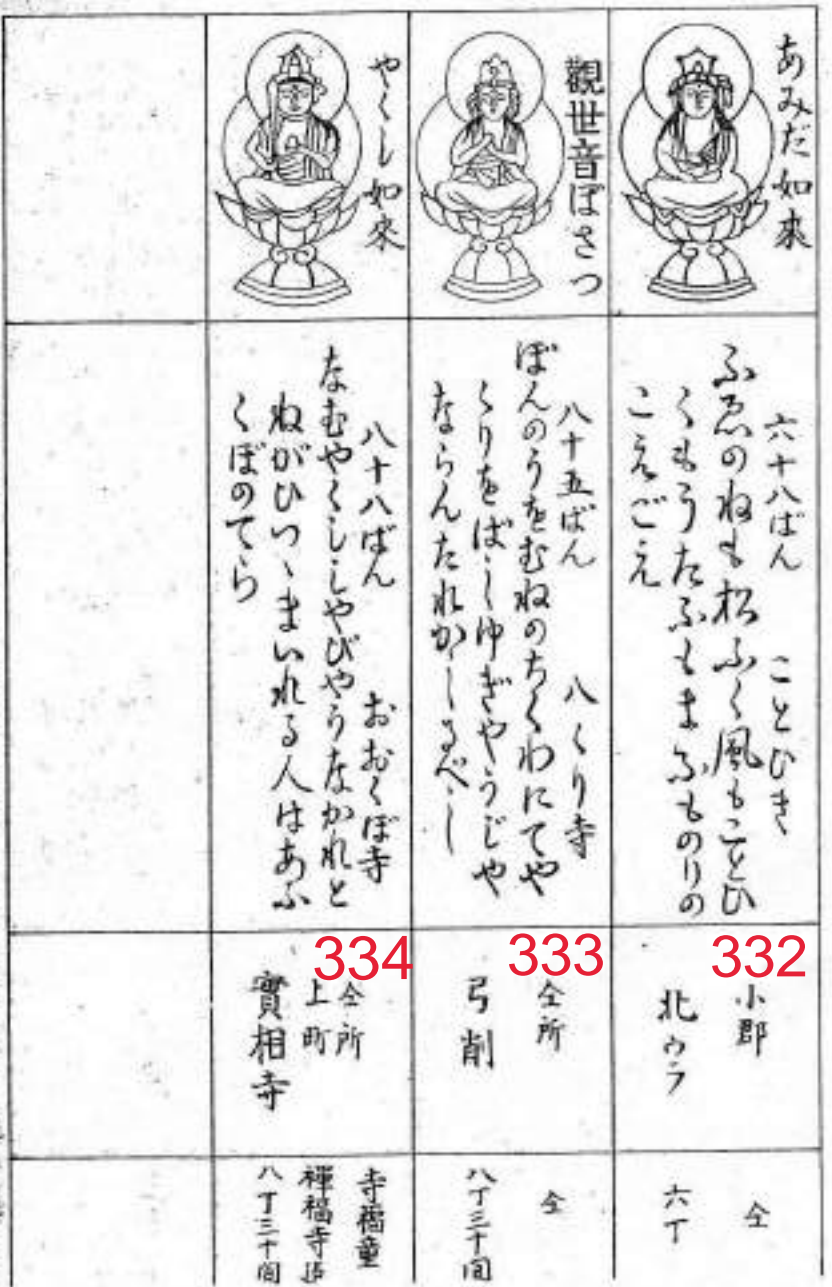 あみだ如来
六十八ばん　ことひき
ふゑのねも松ふく風もことひ
くもうたふもまふものりの
こえごえ
332
小郡
北ウラ
仝
六丁
観世音ぼさつ
八十五ばん　八くり寺
ぼんのうをむねのちくわにてや
くりをばしゆぎやうじや
ならんたれかしるべし
333
仝所
弓削
仝
八丁三十間
やくし如来
八十八ばん　おおくぼ寺
なむやくししやびやうなかれと
ねがひつゝまいれる人はあふ
くぼのてら
334
仝所
上町
實相寺
寺福童
禅福寺迄
八丁三十間